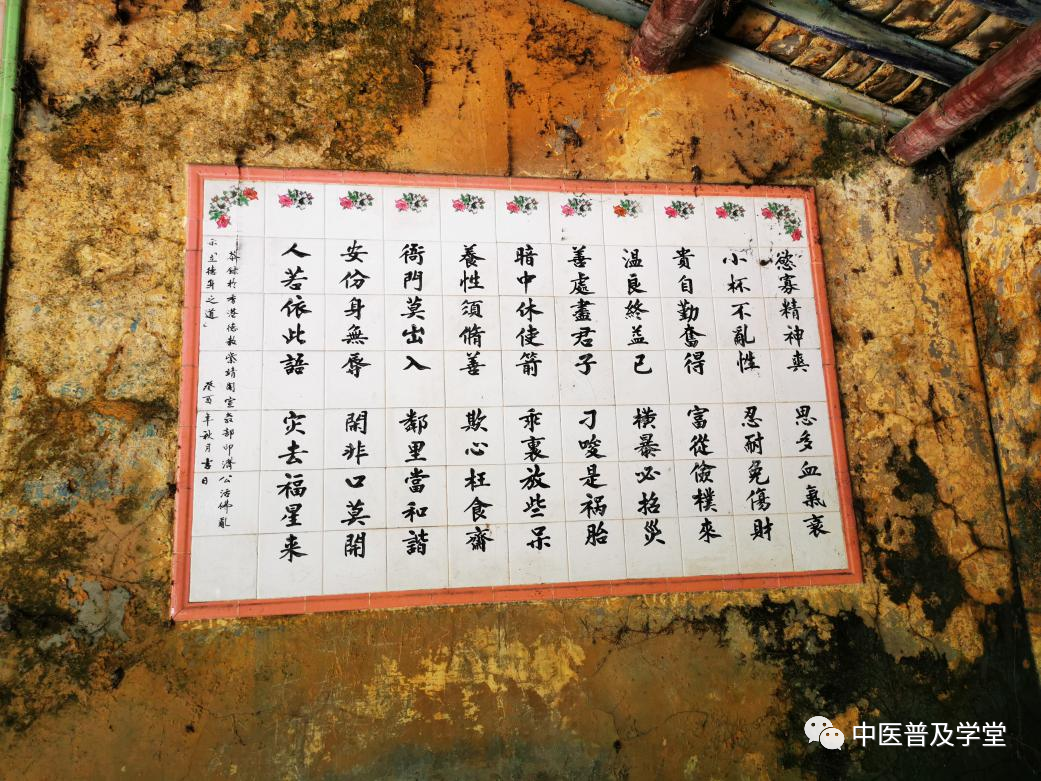 慾寡精神爽 思多血氣衰
小杯不亂性 忍耐免傷財
貴自勤奮得 富從儉樸來
温良終益己 横暴必招災
善處盡君子 刁唆是祸胎
暗中休使箭 乖裏放些呆
養性須脩善 欺心枉食齋
衙門莫出入 鄰里當和諧
安份身無辱 閑非口莫開
人若依此語 灾去福星来
錄於香港德教紫靖閣宣教部印濟公活佛
示「立德身之道」 癸酉年秋月吉日
中医普及学堂